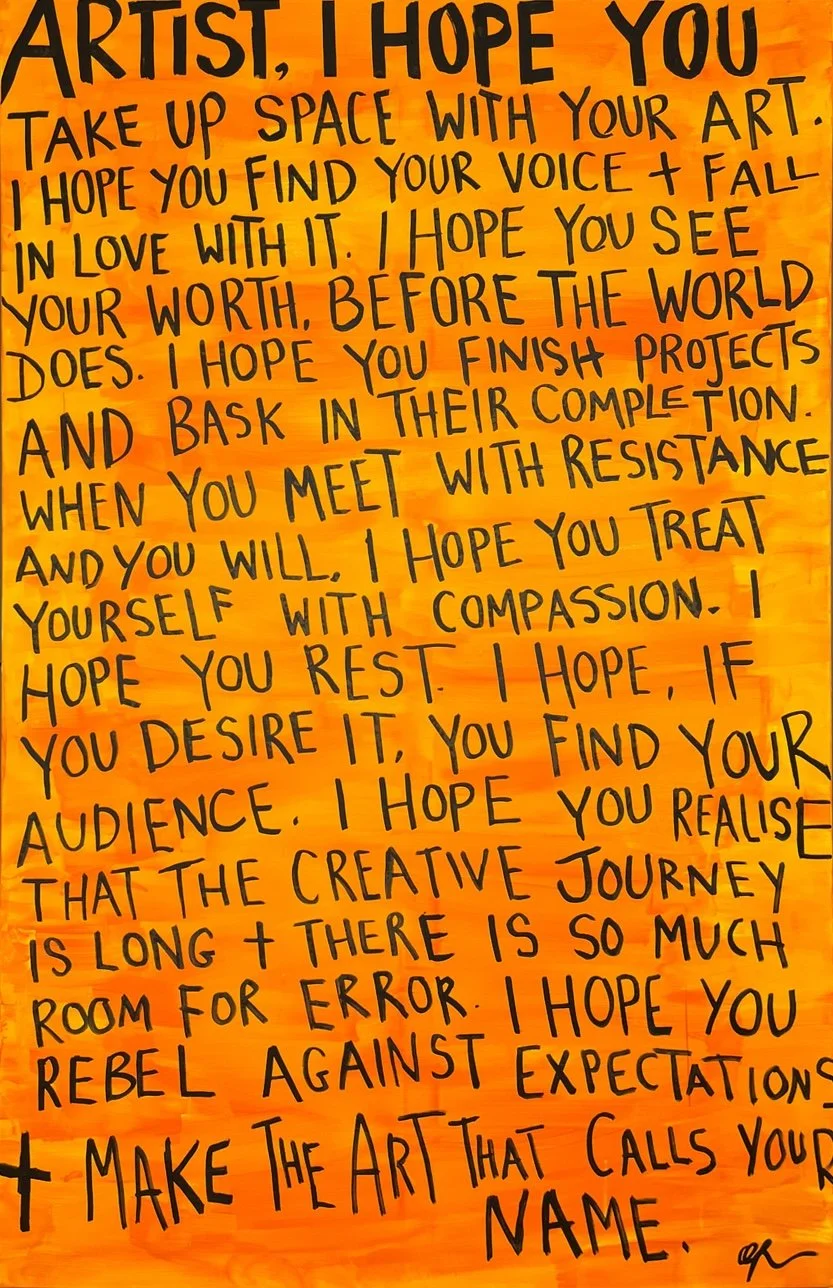 ARTIST, I HOPE YOU
TAKE UP SPACE WITH YOUR ART.
I HOPE YOU FIND YOUR VOICE + FALL
IN LOVE WITH IT. I HOPE YOU SEE
YOUR WORTH, BEFORE THE WORLD
DOES. I HOPE YOU FINISH PROJECTS
AND BASK IN THEIR COMPLETION.
WHEN YOU MEET WITH RESISTANCE
AND YOU WILL, I HOPE YOU TREAT
YOURSELF WITH COMPASSION. I
HOPE YOU REST. I HOPE, IF
YOU DESIRE IT, YOU FIND YOUR
AUDIENCE. I HOPE YOU REALISE
THAT THE CREATIVE JOURNEY
IS LONG + THERE IS SO MUCH
ROOM FOR ERROR. I HOPE YOU
REBEL AGAINST EXPECTATIONS
+ MAKE THE ART THAT CALLS YOUR
NAME.